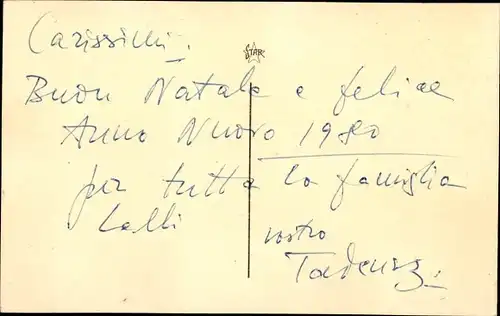 Carissimi.
STAR
Buon Natale e felice
Anno Nuovo 1980
per tutta la famiglia
Lalli
vostro
Tadeusz.